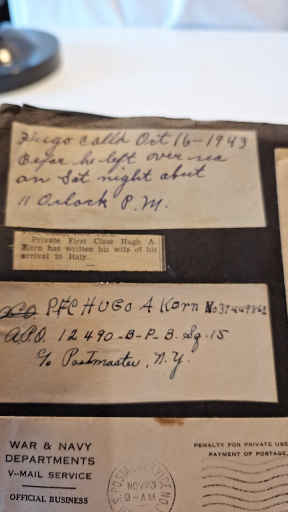 Hugo calld Oct 16-1943
Befor he left over sea
on Sat night about
11 Oclock P.M.
Private First Class Hugh A.
Korn has written his wife of his
arrival in Italy.
PFC HUGO A Korn No
A.P.O. 12490-B-P-B. Sq. 15
c/o Postmaster, N.Y.
WAR & NAVY
DEPARTMENTS
V-MAIL SERVICE
OFFICIAL BUSINESS
PENALTY FOR PRIVATE USE
PAYMENT OF POSTAGE,
NOV 23